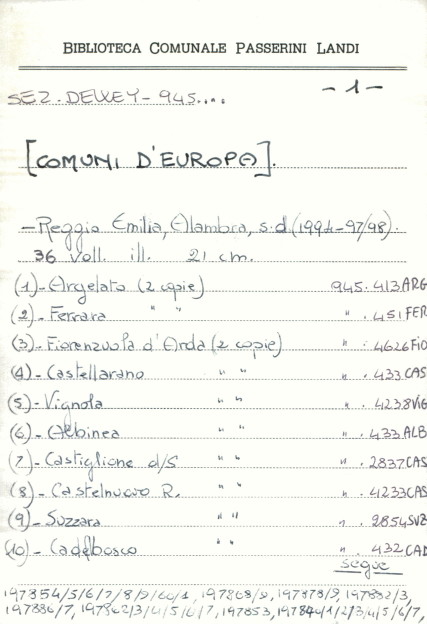 BIBLIOTECA COMUNALE PASSERINI LANDI
SEZ. DEWEY - 945.... - 1 -
[COMUNI D'EUROPA].
- Reggio Emilia, Alambra, s.d. (1994-97/98).
36 voll. ill. 21 cm.
(1) - Argelato (2 copie) 945.413ARG
(2) - Ferrara " " " .451FER
(3) - Fiorenzuola d'Arda (2 copie) " .4626FIO
(4) - Castellarano " " " .433CAS
(5) - Vignola " " " .4238VIG
(6) - Albinea " " " .433ALB
(7) - Castiglione d/S " " " .2837CAS
(8) - Castelnuovo R. " " " .4233CAS
(9) - Suzzara " " " .2854SUZ
(10) - Cadelbosco " " " .432CAD
segue
197854/5/6/7/8/9/60/1, 197868/9, 197878/9, 197882/3,
197886/7, 197862/3/4/5/6/7, 197853, 197840/1/2/3/4/5/6/7,